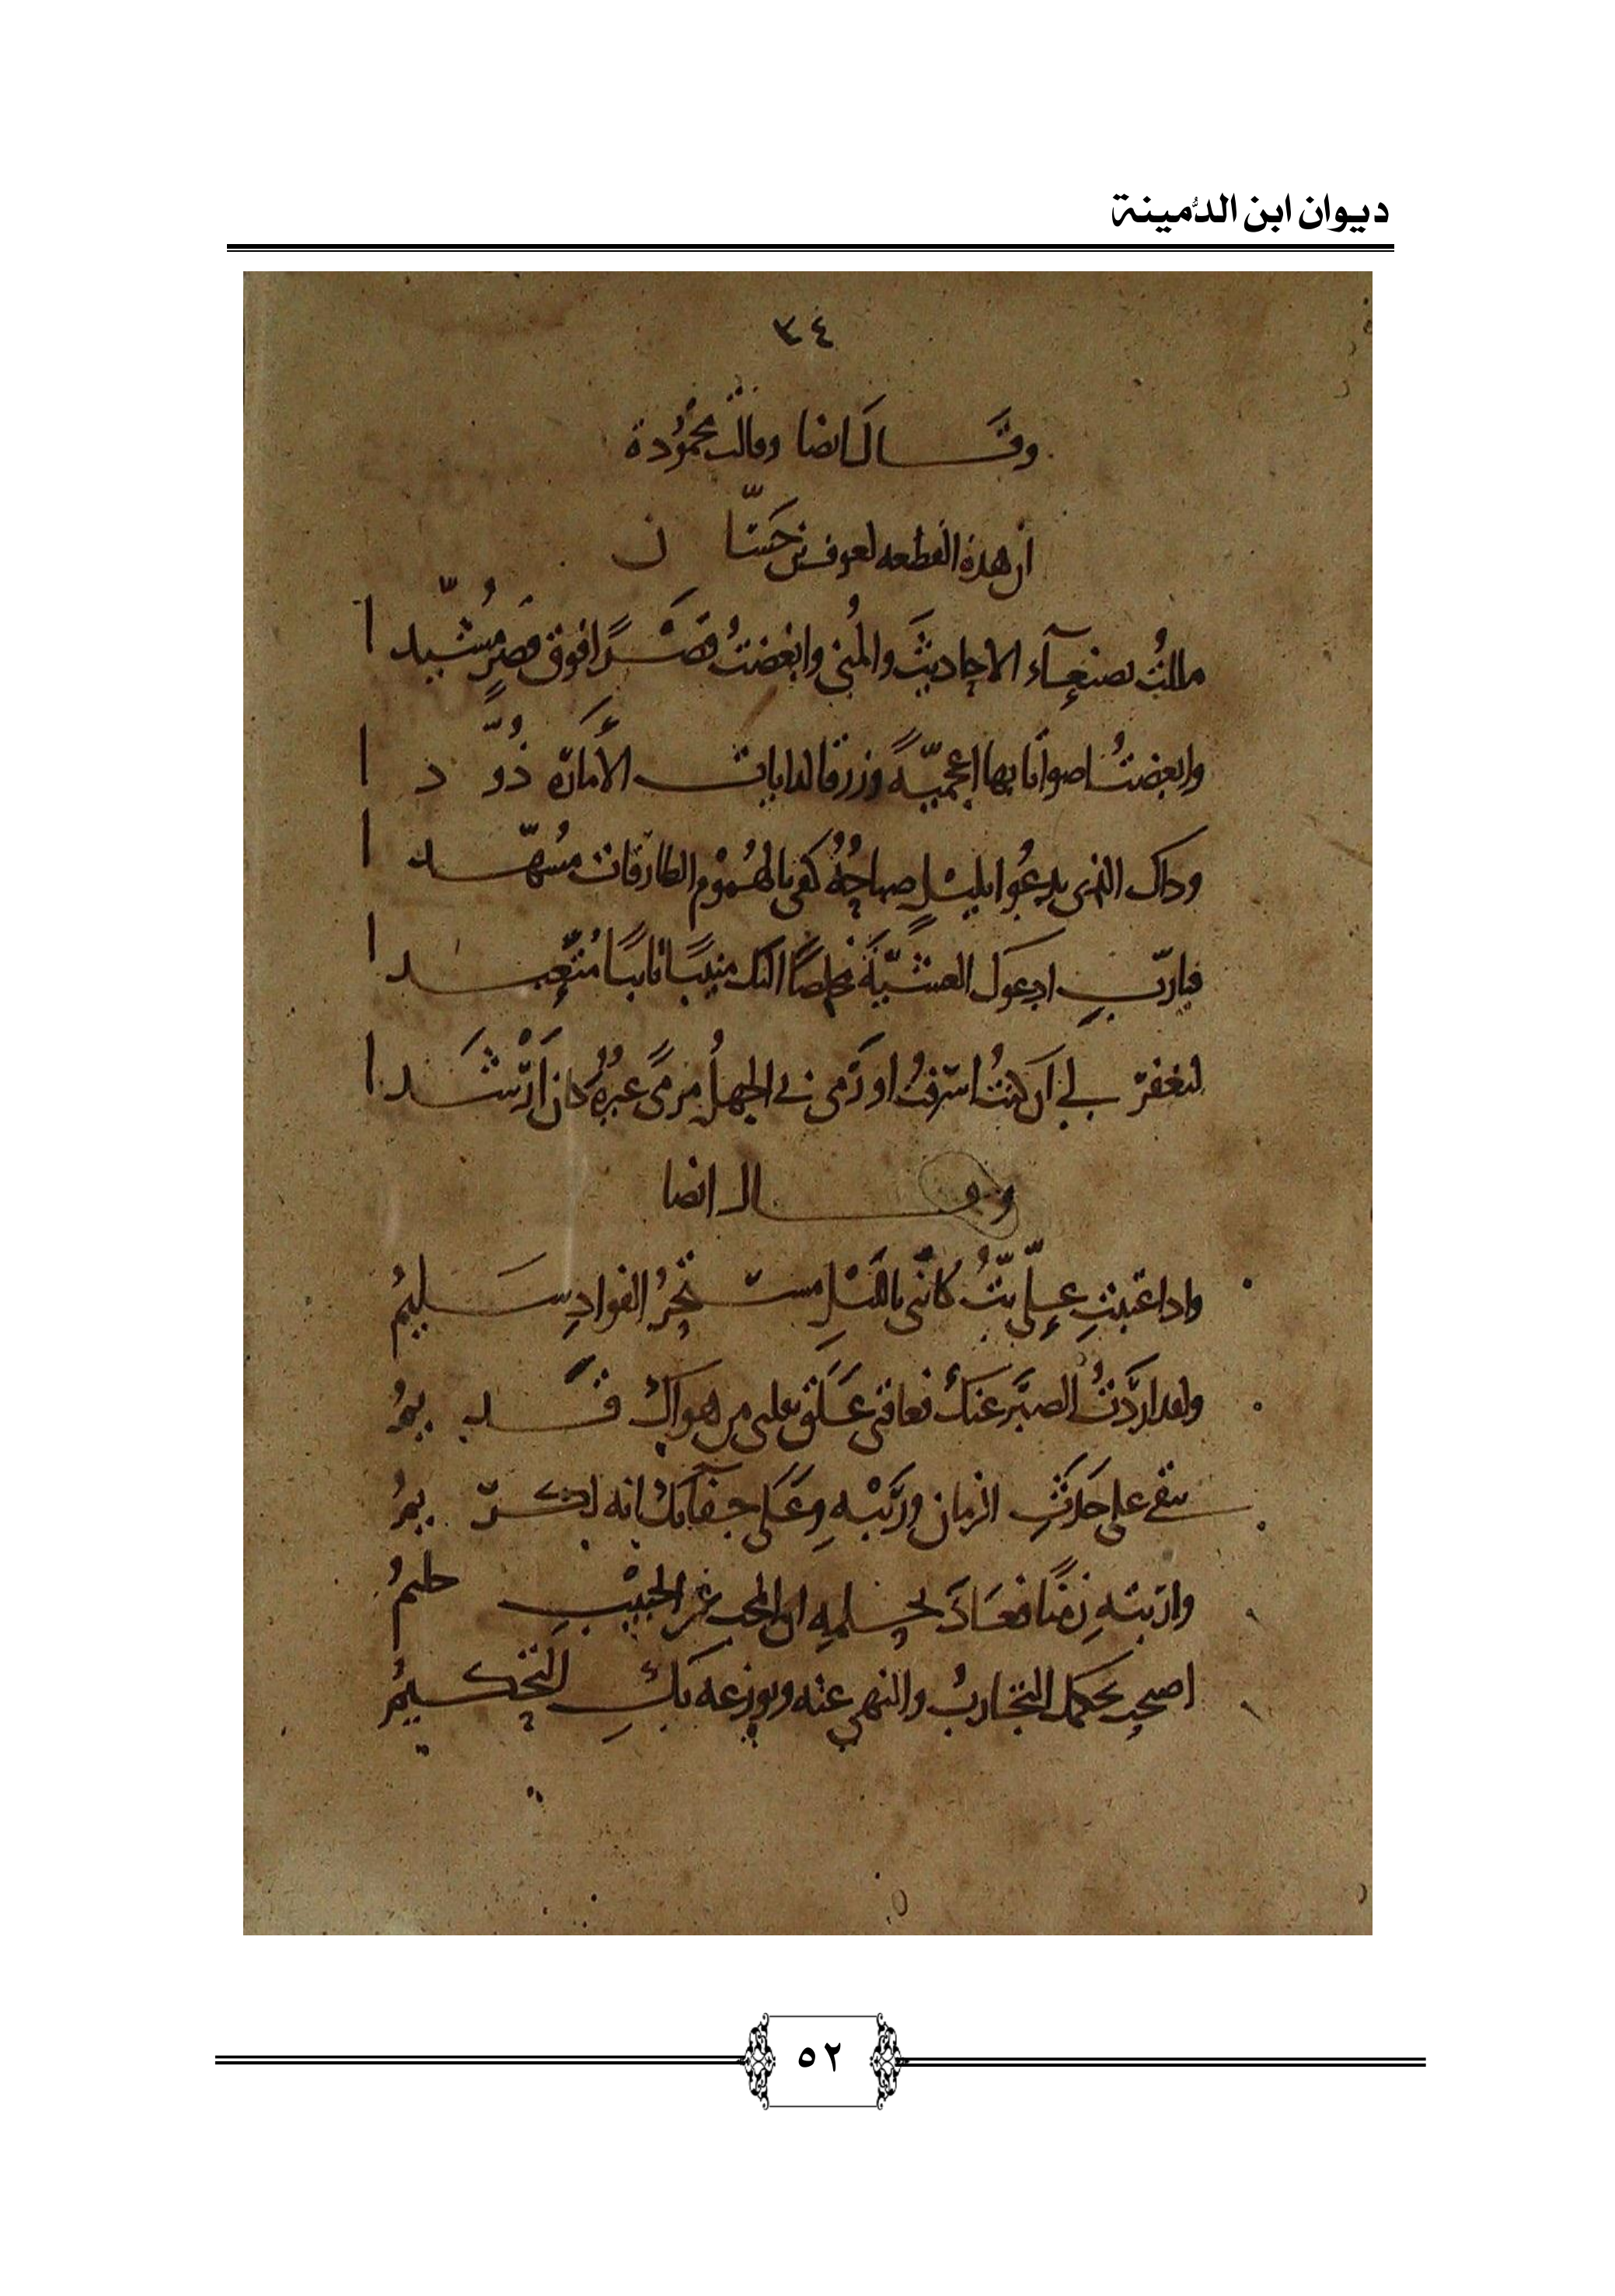 ديوان ابن الدُّمينة
٣٤
وقَــال ايضا وقالت محمُودة
ان هذه القطعه لعوف بن حَسَّا ن
مللتُ بصنعآء الاحاديثَ والمُنى وابغضتُ قَصْرًا فوق قصرٍ مُشَيّدا
وابغضتُ اصواتا بها اعجميّةً وزرقا لدايات الأمارة ذُوَّدا
وداك الذى يدعُوا بليْلٍ صباحُهُ كفى بالهُمُوم الطارقات مُسهّدا
فيارَبِّ ادعوك العشيَّةَ مخلصًا اليك منيبًا تايبًا مُتَعَبّدا
لتغفر لي ان كنتُ اسرفتُ او رَمى بي الجهلُ مرمًى غيرُهُ كان ارْشَدا
وقــال ايضا
واذا عتبتِ علىّ بتُّ كانّنى بالليْلِ مستحرُ الفوادِ سَليمُ
ولقد اردْتُ الصبْرَ عنكِ فعاقنى عَلَق بقلبى من هواكِ قَديمُ
يبقى على حَدَثِ الزمان ورَيْبِهِ وعَلَى جفآئكِ انه لكريمُ
واربتِهِ زمنًا فعَاذَ بحلمِهِ ان المحب عن الحبيْبِ حليمُ
اصحب بحكمك التجاربُ والنهى عنه ويوزعه بكِ التحكيمُ
٥٢